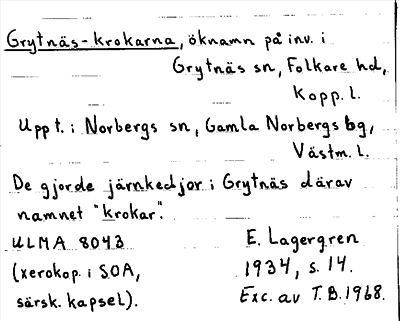 Grytnäs-krokarna, öknamn på inv. i
Grytnäs sn, Folkare hd,
Kopp. l.
Uppt. i Norbergs sn, Gamla Norbergs bg,
Västm. l.
De gjorde järnkedjor i Grytnäs därav
namnet "krokar".
ULMA 8043
E. Lagergren
(xerokop. i SOA,
1934, s. 14.
särsk. kapsel).
Exc. av T.B. 1968.